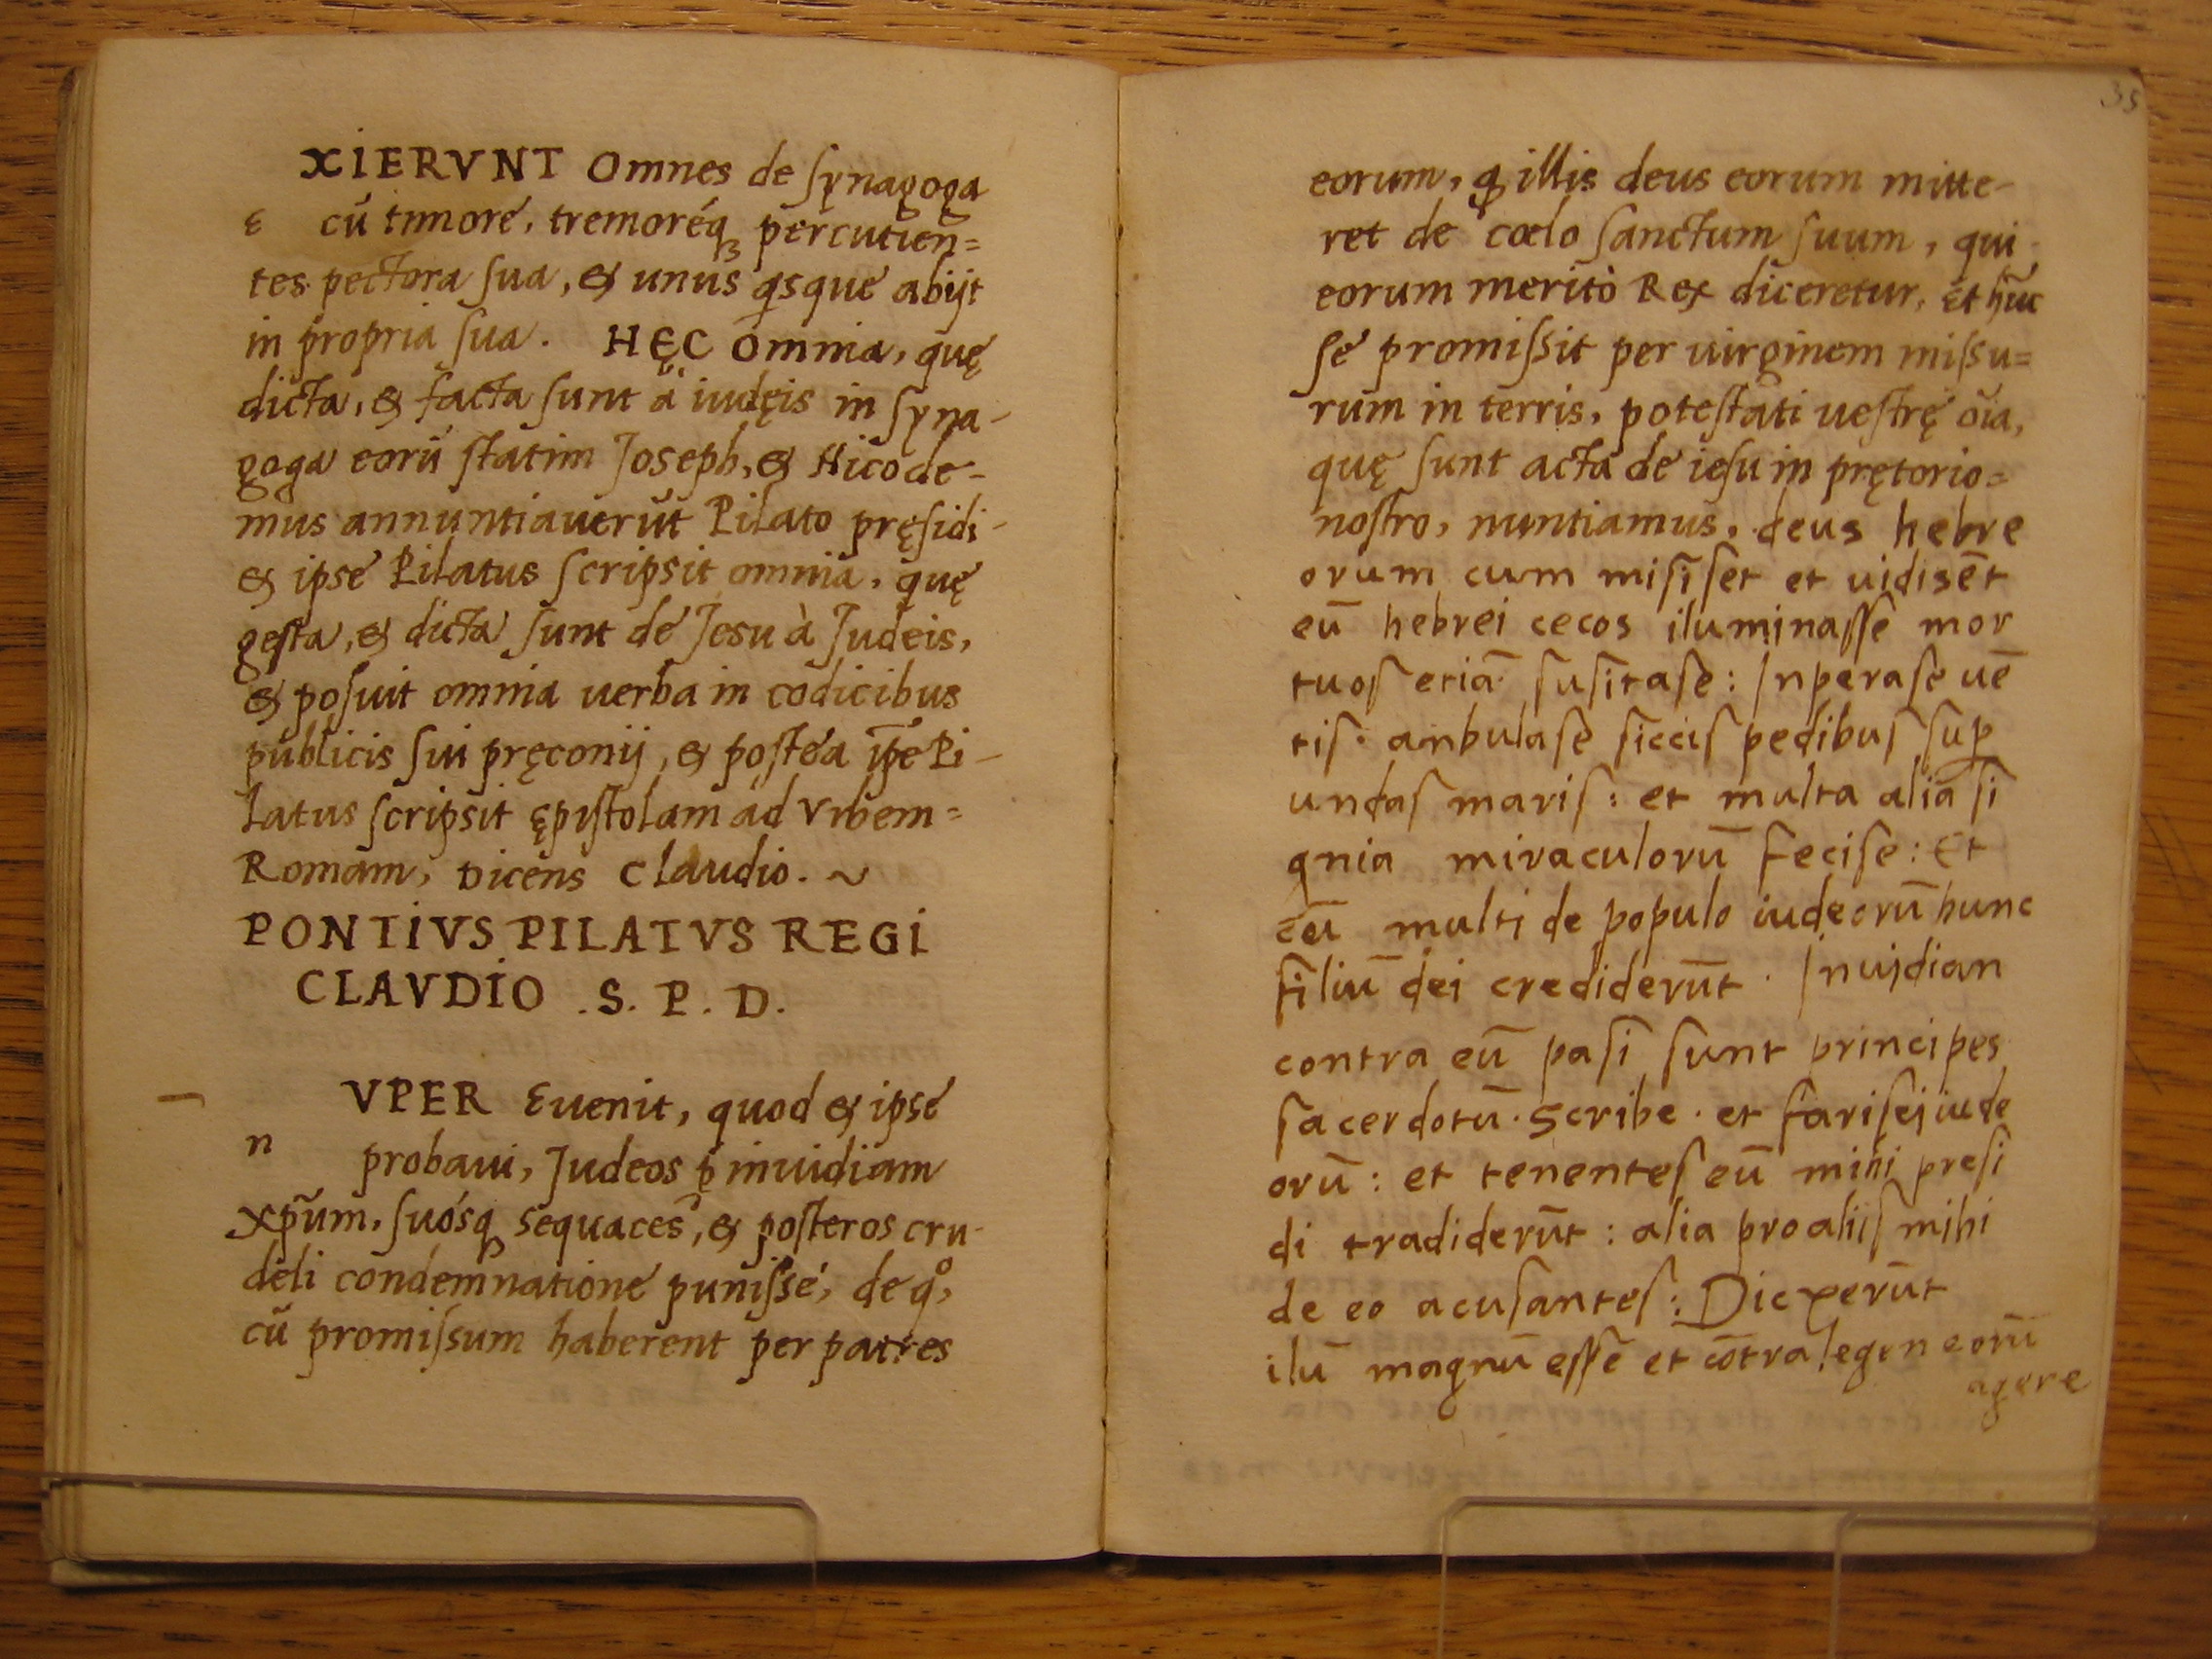 XIERVNT Omnes de ſynagoga
ε cū timore, tremoréq₃ percutien=
tes pectora ſua, & unus qsque abijt
in propria ſua. HĘC omnia, quę
dicta, & facta ſunt à iudęis in ſyna-
goga eorū ſtatim Joseph, & Nicode-
mus annuntiauerūt Pilato pręſidi-
& ipse Pilatus ſcripsit omnia, quę
geſta, & dicta ſunt de Jesu à Judeis,
& poſuit omnia uerba in codicibus
publicis ſui pręconij, & poſtea ip̄e Pi-
latus ſcripsit ępiſtolam ad Vrbem=
Romam, Dicens Claudio. ~
PONTIVS PILATVS REGI
CLAVDIO .S. P. D.
VPER Euenit, quod & ipse
n probaui, Judeos p̱ inuidiam
xp̄um, ſuósq₃ sequaces, & poſteros cru-
deli condemnatione puniſſe, de qº,
cū promiſsum haberent per patres
35
eorum, ꝙ illis deus eorum mitte-
ret de cœlo ſanctum ſuum, qui
eorum meritò Rex diceretur, Et hūc
ſe promiſsit per uirginem miſsu=
rum in terris, poteſtati ueſtrę oīa,
quę ſunt acta de ieſu in prętorio=
noſtro, nuntiamus. deus hebre
orum cum miſiſet et uidisēt
eū hebrei cecos iluminaſſe mor
tuoſ etiā ſuſitaſe: Inperaſe uē
tiſ. anbulaſe ſicciſ pedibuſ ſuꝑ
undaſ mariſ: et multa alia ſi
gnia miraculorū feciſe: Et
cū multi de populo iudeorū hunc
filiū dei crediderūt. Inuidian
contra eū paſi ſunt principes
ſacerdotū. scribe. et fariſei iude
orū: et tenenteſ eū mihi preſi
di tradiderūt: alia pro aliiſ mihi
de eo acuſanteſ: Dicxerūt
ilū magnū eſſe et cōtra legen eorū
agere